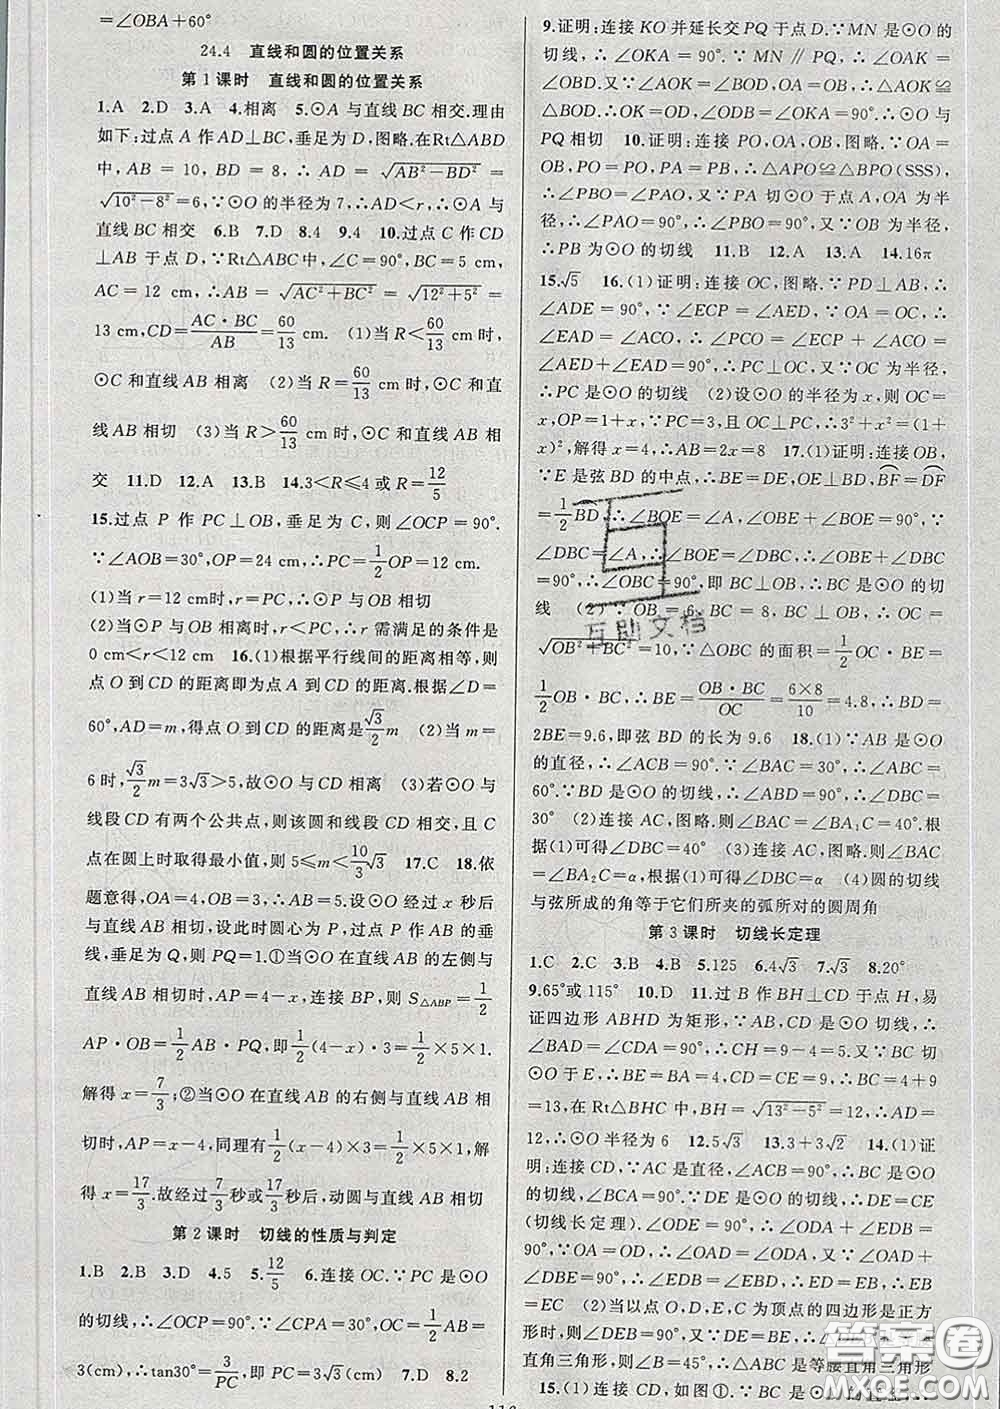 ＝∠OBA＋60°
24.4　直线和圆的位置关系
第1课时　直线和圆的位置关系
1.A　2.D　3.A　4.相离　5.⊙A与直线BC相交.理由
如下:过点A作AD⊥BC,垂足为D,图略.在Rt△ABD
中,AB＝10,BD＝8,∴AD＝√(AB²－BD²)＝
√(10²－8²)＝6,∵⊙O的半径为7,∴AD＜r,∴⊙A与
直线BC相交　6.B　7.D　8.4　9.4　10.过点C作CD
⊥AB于点D.∵Rt△ABC中,∠C＝90°,BC＝5 cm,
AC＝12 cm,∴AB＝√(AC²＋BC²)＝√(12²＋5²)＝
13 cm,CD＝AC·BC/AB＝60/13 cm.　(1)当R＜60/13 cm时,
⊙C和直线AB相离　(2)当R＝60/13 cm时,⊙C和直
线AB相切　(3)当R＞60/13 cm时,⊙C和直线AB相
交　11.D　12.A　13.B　14.3＜R≤4或R＝12/5
15.过点P作PC⊥OB,垂足为C,则∠OCP＝90°.
∵∠AOB＝30°,OP＝24 cm,∴PC＝1/2OP＝12 cm.
(1)当r＝12 cm时,⊙P与OB相切
(2)当⊙P与OB相离时,r＜PC,∴r需满足的条件是
0 cm＜r＜12 cm　16.(1)根据平行线间的距离相等,则
点O到CD的距离即为点A到CD的距离.根据∠D＝
60°,AD＝m,得点O到CD的距离是√3/2m　(2)当m＝
6时,√3/2m＝3√3＞5,故⊙O与CD相离　(3)若⊙O与
线段CD有两个公共点,则该圆和线段CD相交,且C
点在圆上时取得最小值,则5≤m＜10/3√3　17.C　18.依
题意得,OA＝4,OB＝3,∴AB＝5.设⊙O经过x秒后
与直线AB相切,设此时圆心为P,过点P作AB的垂
线,垂足为Q,则PQ＝1.①当⊙O在直线AB的左侧与
直线AB相切时,AP＝4－x,连接BP,则S△ABP＝1/2
AP·OB＝1/2AB·PQ,即1/2(4－x)·3＝1/2×5×1.
解得x＝7/3;②当⊙O在直线AB的右侧与直线AB相
切时,AP＝x－4,同理有1/2(x－4)×3＝1/2×5×1,解
得x＝17/3.故经过7/3秒或17/3秒后,动圆与直线AB相切
第2课时　切线的性质与判定
1.B　2.B　3.D　4.5　5.12/5　6.连接OC.∵PC是⊙O
的切线,∴∠OCP＝90°.∵∠CPA＝30°,OC＝1/2AB＝
3(cm),∴tan30°＝3/PC,即PC＝3√3(cm)　7.D　8.2
9.证明:连接KO并延长交PQ于点D.∵MN是⊙O
的切线,∴∠OKA＝90°.∵MN∥PQ,∴∠OAK＝
∠OBD.又∵∠AOK＝∠BOD,OA＝OB,∴△AOK≌
△BOD,∴OK＝OD,∠ODB＝∠OKA＝90°.∴⊙O与
PQ相切　10.证明:连接PO,OA,OB,图略.∵OA＝
OB,PO＝PO,PA＝PB,∴△APO≌△BPO(SSS),
∴∠PBO＝∠PAO,又∵PA切⊙O于点A,OA为半
径,∴∠PAO＝90°,∴∠PBO＝90°,又∵OB为半径,
∴PB为⊙O的切线　11.B　12.A　13.A　14.16π
15.√5　16.(1)证明:连接OC,图略.∵PD⊥AB,∴
∠ADE＝90°,∵∠ECP＝∠AED,又∵OA＝OC,∴
∠EAD＝∠ACO,∴∠PCO＝∠ECP＋∠ACO＝
∠AED＋∠EAD＝90°,∴PC⊥OC,OC是⊙O的半径,
∴PC是⊙O的切线　(2)设⊙O的半径为x,则OC＝
x,OP＝1＋x,∵PC＝3,且OC⊥PC,∴3²＋x²＝(1＋
x)²,解得x＝4,∴AB＝2x＝8　17.(1)证明:连接OB,
∵E是弦BD的中点,∴BE＝DE,OE⊥BD,BF＝DF
＝1/2BD,∴∠BOE＝∠A,∠OBE＋∠BOE＝90°,∵
∠DBC＝∠A,∴∠BOE＝∠DBC,∴∠OBE＋∠DBC
＝90°,∴∠OBC＝90°,即BC⊥OB,∴BC是⊙O的切
线　(2)∵OB＝6,BC＝8,BC⊥OB,∴OC＝
√(OB²＋BC²)＝10,∵△OBC的面积＝1/2OC·BE＝
1/2OB·BC,∴BE＝OB·BC/OC＝6×8/10＝4.8,∴BD＝
2BE＝9.6,即弦BD的长为9.6　18.(1)∵AB是⊙O
的直径,∴∠ACB＝90°.∵∠BAC＝30°,∴∠ABC＝
60°.∵BD是⊙O的切线,∴∠ABD＝90°,∴∠DBC＝
30°　(2)连接AC,图略.∠BAC＝∠BA₁C＝40°,
根据(1)可得∠DBC＝40°　(3)连接AC,图略.∠BAC
＝∠BA₂C＝α,根据(1)可得∠DBC＝α　(4)圆的切线
与弦所成的角等于它们所夹的弧所对的圆周角
第3课时　切线长定理
1.C　2.C　3.B　4.B　5.125　6.4√3　7.√3　8.20°
9.65°或115°　10.D　11.过B作BH⊥CD于点H,易
证四边形ABHD为矩形,∵AB,CD是⊙O的切线,∴
∠BAD＝∠CDA＝90°,∴CH＝9－4＝5.又∵BC切
⊙O于E,∴BE＝BA＝4,CD＝CE＝9,∴BC＝4＋9
＝13,在Rt△BHC中,BH＝√(13²－5²)＝12,∴AD＝
12,∴⊙O半径为6　12.5√3　13.3＋3√2　14.(1)证
明:连接CD,∵AC是直径,∠ACB＝90°,∴BC是⊙O
的切线,∠BCA＝90°.∵DE是⊙O的切线,∴DE＝CE
(切线长定理).∠ODE＝90°,∴∠ODA＋∠EDB＝
90°,∵OA＝OD,∴∠OAD＝∠ODA,又∵∠OAD＋
∠DBE＝90°,∴∠EDB＝∠EBD,∴DE＝EB,∴EB
＝EC　(2)当以点O,D,E,C为顶点的四边形是正方
形时,则∠DEB＝90°,又∵DE＝BE,∴△DEB是等腰
直角三角形,则∠B＝45°,∴△ABC是等腰直角三角形
15.(1)连接CD,如图①.
互助文档
答案圈